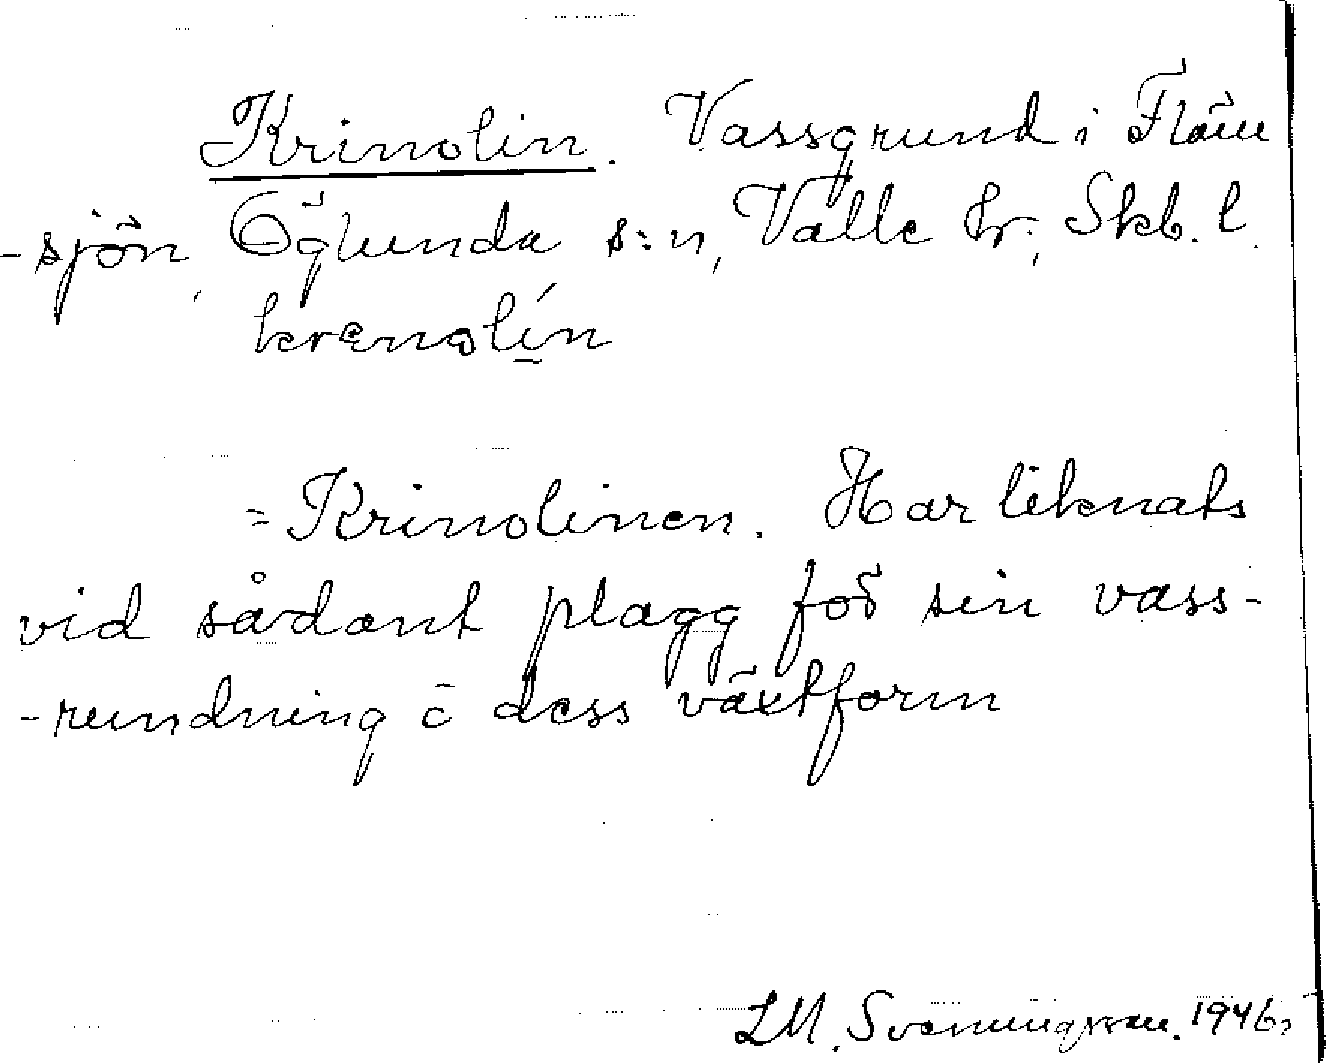 Krinolin. Vassgrund i Fläm
-sjön, Öglunda s:n, Valle hr; Skb. l.
krenolín
= Krinolinen. Har liknats
vid sådant plagg för sin vass-
-rundning o dess växtform
LM. Svenningsson. 1946.